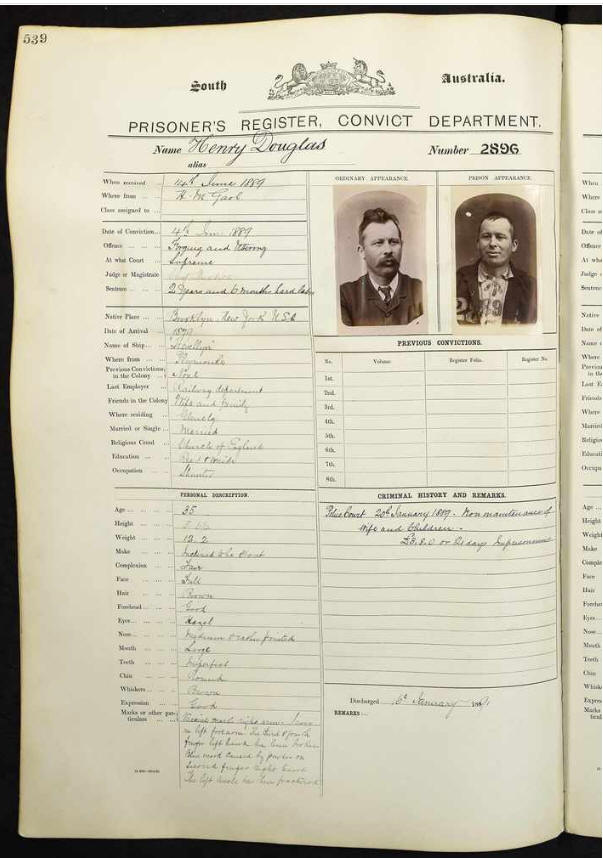 539
South Australia.
PRISONER'S REGISTER, CONVICT DEPARTMENT.
Name Henry Douglas Number 2896
alias
When received 14th June 1889
Where from H. M. Gaol
Class assigned to
Date of Conviction 4th June 1889
Offence Forging and Uttering
At what Court Supreme
Judge or Magistrate
Sentence 2 Years and 6 months hard labor
Native Place Brooklyn, New York U.S.A
Date of Arrival
Name of Ship
Where from
Previous Convictions in the Colony
Last Employer Railway department
Friends in the Colony Wife and family
Where residing Glenelg
Married or Single Married
Religious Creed Church of England
Education Read & Write
Occupation
ORDINARY APPEARANCE.
PRISON APPEARANCE.
PREVIOUS CONVICTIONS.
No. Volume Register Folio. Register No.
1st.
2nd.
3rd.
4th.
5th.
6th.
7th.
8th.
PERSONAL DESCRIPTION.
Age 35
Height
Weight 12. 2
Make Inclined to be stout
Complexion Fair
Face Full
Hair Brown
Forehead Good
Eyes Hazel
Nose Medium & rather pointed
Mouth Large
Teeth Imperfect
Chin Round
Whiskers Brown
Expression Good
Marks or other particulars Vaccine mark right arm.
on left forearm. The third & fourth
finger left hand has been broken
Blue mark caused by powder on
second finger right hand
The left ancle has been fractured
CRIMINAL HISTORY AND REMARKS.
Police Court 20th January 1889. Non maintenance of
Wife and Children.
£3.8.0 or days Imprisonment
Discharged January 1891
REMARKS